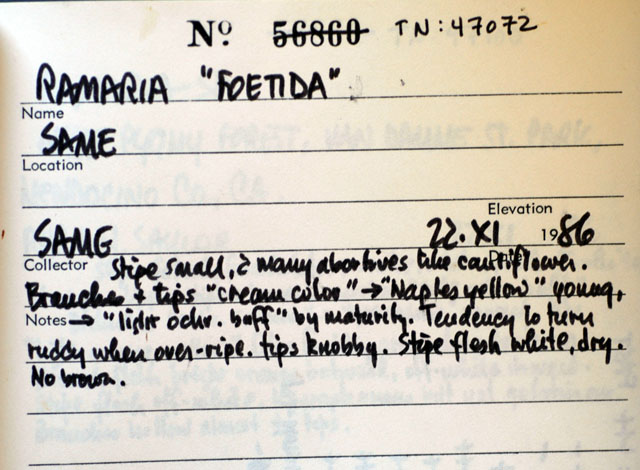 Nº 56860 TN: 47072
RAMARIA "FOETIDA"
Name
SAME
Location
Elevation
SAME 22. XI 1986
Collector Stipe small, c̄ many abortives like cauliflower.
Branches + tips "cream color" → "Naples yellow" young,
Notes → "light ochr. buff" by maturity. Tendency to turn
ruddy when over-ripe. tips knobby. Stipe flesh white, dry.
No brown.